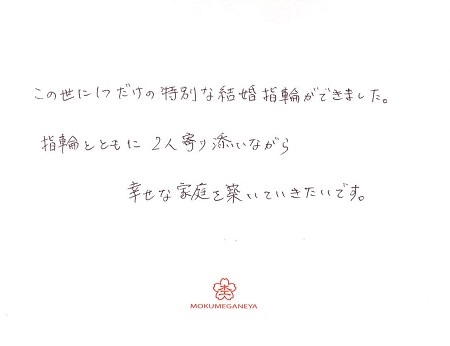 この世に1つだけの特別な結婚指輪ができました。
指輪とともに 2人寄り添いながら
幸せな家庭を築いていきたいです。
杢
MOKUMEGANEYA